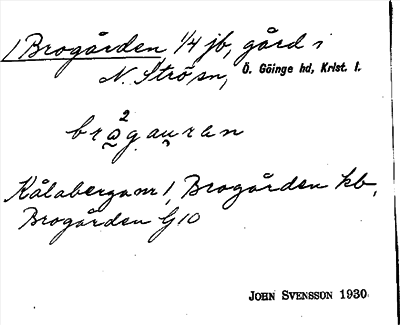 1 Brogården 1/4 jb, gård i
N. Strösn, Ö. Göinge hd, Krist. l.
Kålaberga nr 1, Brogården kb,
Brogården G 10
JOHN SVENSSON 1930.